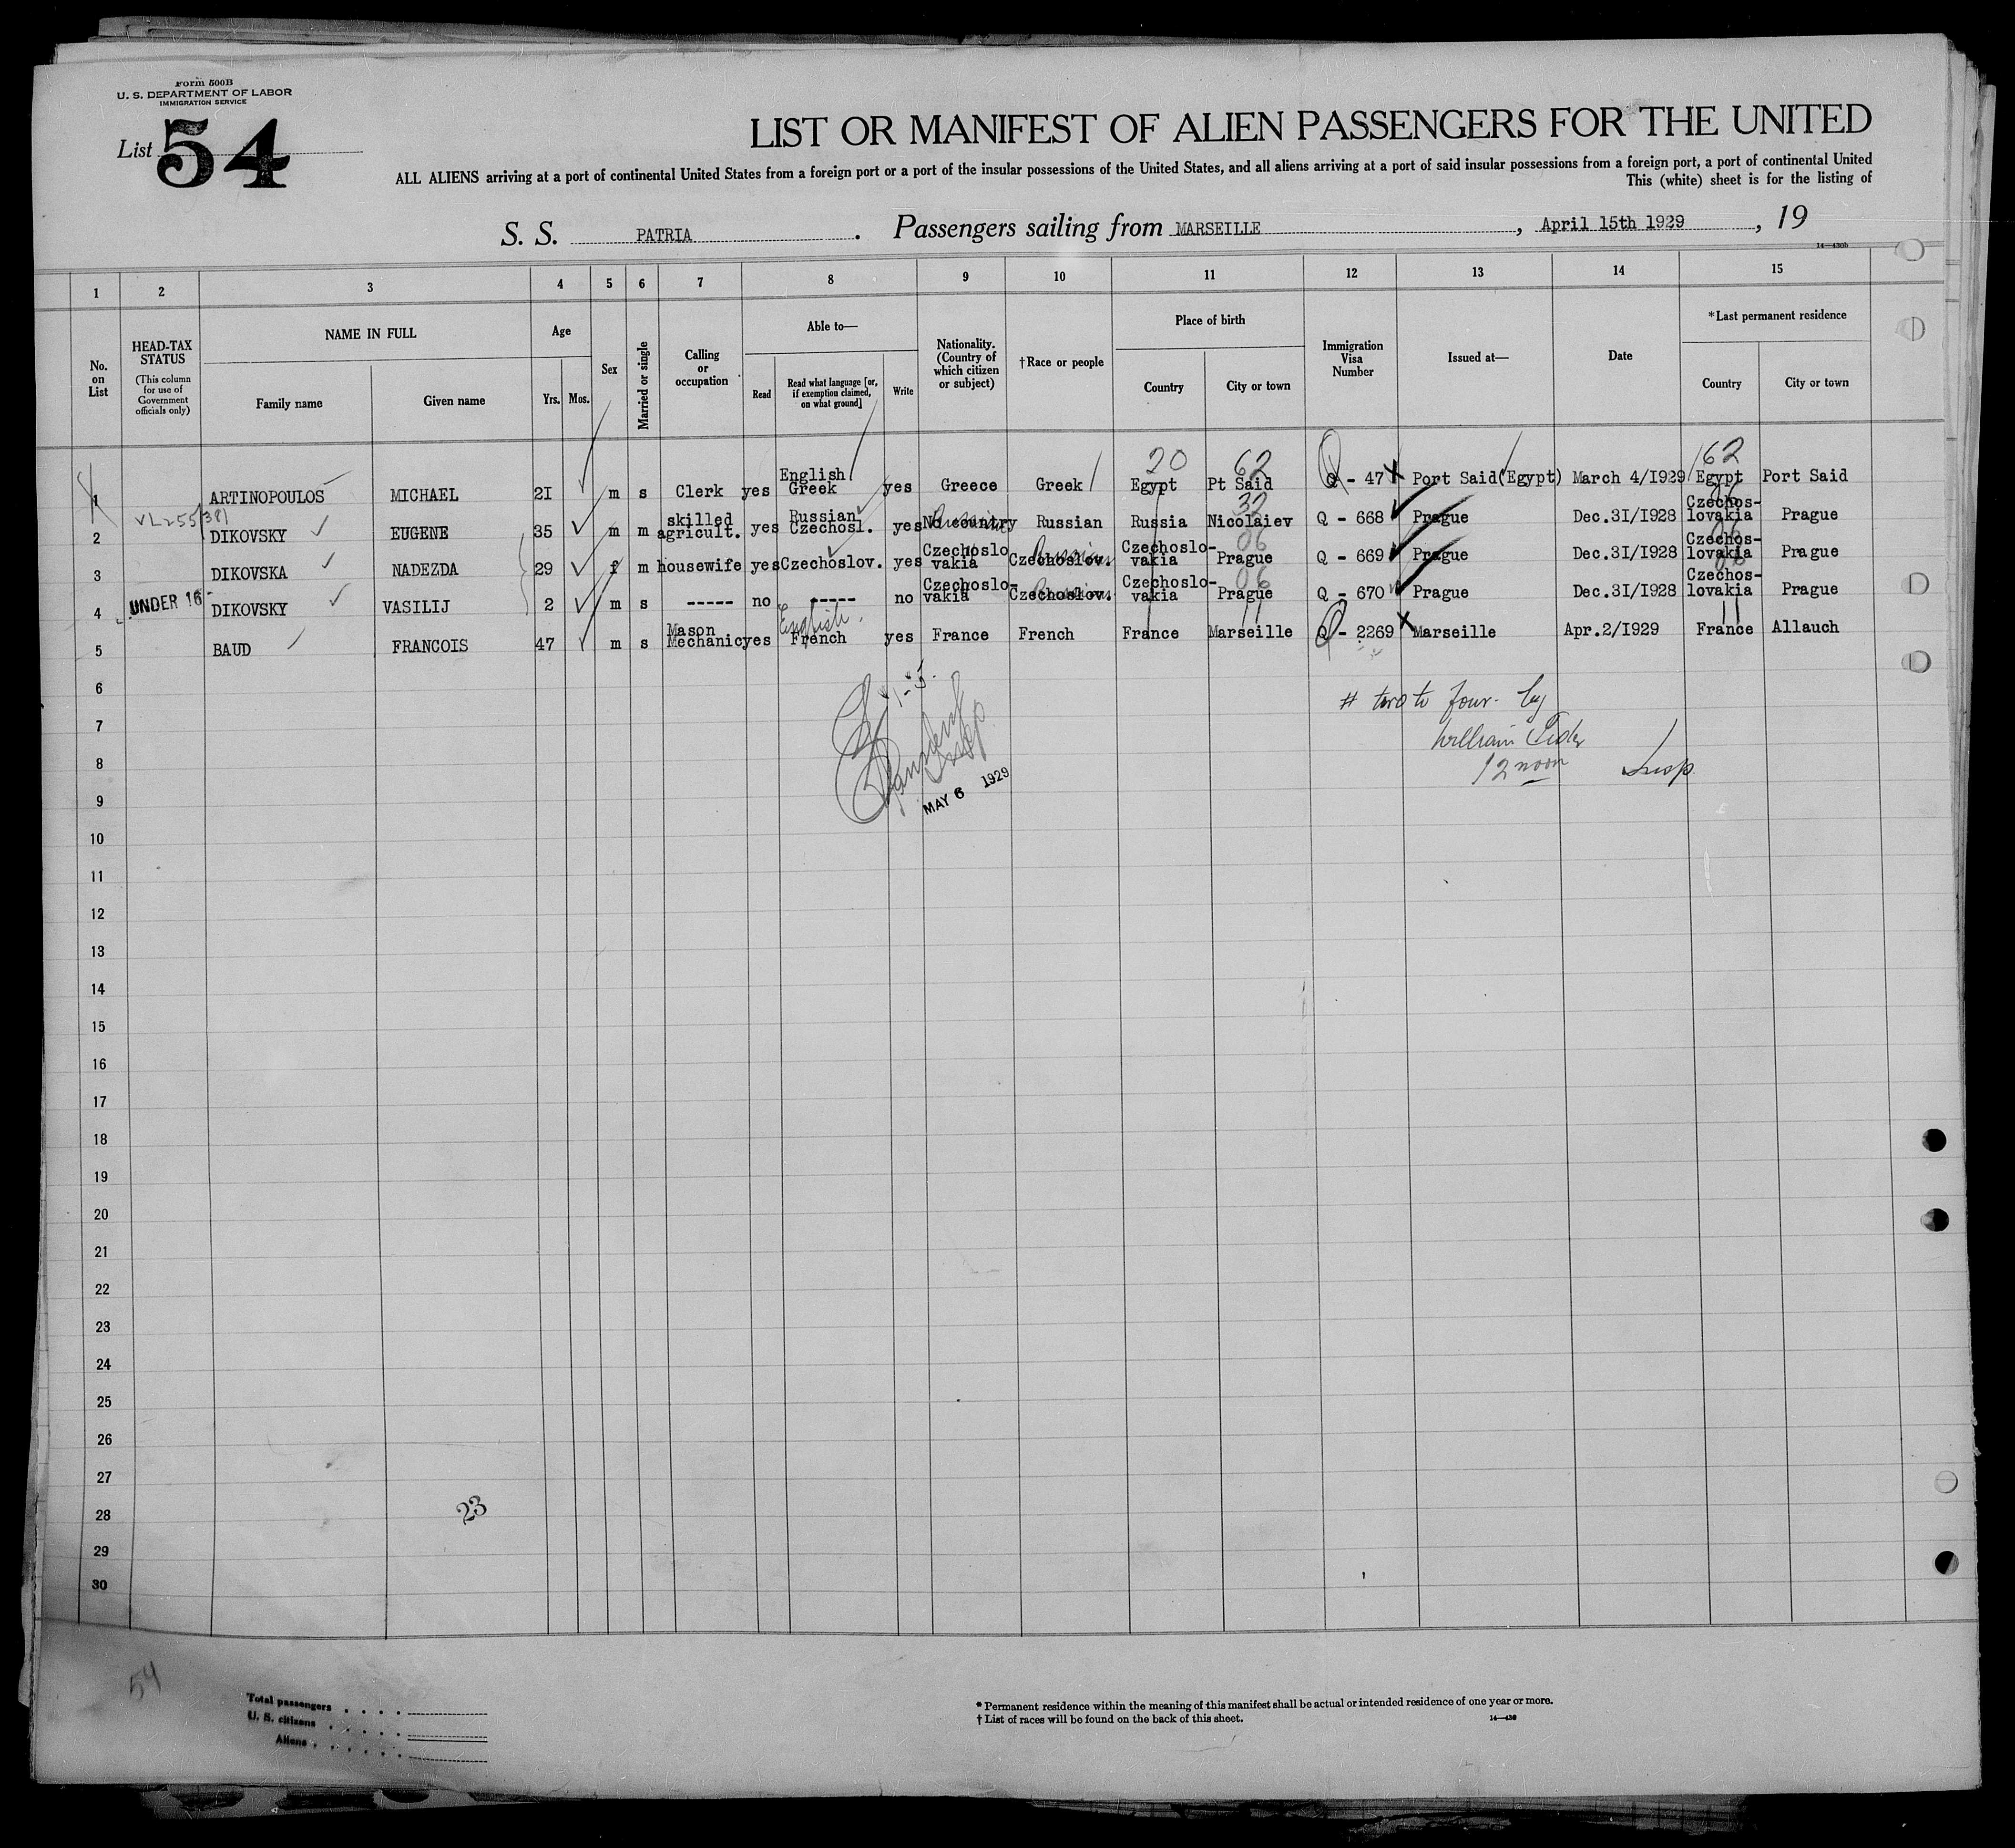 Form 500B
U. S. DEPARTMENT OF LABOR
IMMIGRATION SERVICE
List 54
LIST OR MANIFEST OF ALIEN PASSENGERS FOR THE UNITED
ALL ALIENS arriving at a port of continental United States from a foreign port or a port of the insular possessions of the United States, and all aliens arriving at a port of said insular possessions from a foreign port, a port of continental United
This (white) sheet is for the listing of
S. S. PATRIA . Passengers sailing from MARSEILLE , April 15th 1929 , 19
14—430b
1 2 3 4 5 6 7 8 9 10 11 12 13 14 15
No. on List
HEAD-TAX STATUS
(This column for use of Government officials only)
NAME IN FULL
Family name
Given name
Age
Yrs. Mos.
Sex
Married or single
Calling or occupation
Able to—
Read
Read what language [or, if exemption claimed, on what ground]
Write
Nationality. (Country of which citizen or subject)
†Race or people
Place of birth
Country
City or town
Immigration Visa Number
Issued at—
Date
*Last permanent residence
Country
City or town
20 62 162
1 ARTINOPOULOS MICHAEL 2I m s Clerk yes English Greek yes Greece Greek Egypt Pt Said Q - 47 Port Said(Egypt) March 4/I929 Egypt Port Said
2 DIKOVSKY EUGENE 35 m m skilled agricult. yes Russian Czechosl. yes No country Russian Russian Russia Nicolaiev 32 Q - 668 Prague Dec.3I/I928 Czechos-lovakia Prague
3 DIKOVSKA NADEZDA 29 f m housewife yes Czechoslov. yes Czechoslo vakia Czechoslov. Russian Czechoslo-vakia Prague 06 Q - 669 Prague Dec.3I/I928 Czechos-lovakia Prague
4 UNDER 16 DIKOVSKY VASILIJ 2 m s ----- no ----- no Czechoslo-vakia Czechoslov. Czechoslo-vakia Prague 06 Q - 670 Prague Dec.3I/I928 Czechos-lovakia Prague
5 BAUD FRANCOIS 47 m s Mason Mechanic yes English. French yes France French France Marseille 11 Q - 2269 Marseille Apr.2/I929 France 11 Allauch
6
# two to four by
7
William
8
12 noon
Insp.
Insp.
MAY 6 1929
9
10
11
12
13
14
15
16
17
18
19
20
21
22
23
24
25
26
27
28
23
29
30
54
Total passengers
U. S. citizens
Aliens
* Permanent residence within the meaning of this manifest shall be actual or intended residence of one year or more.
† List of races will be found on the back of this sheet.
14—430